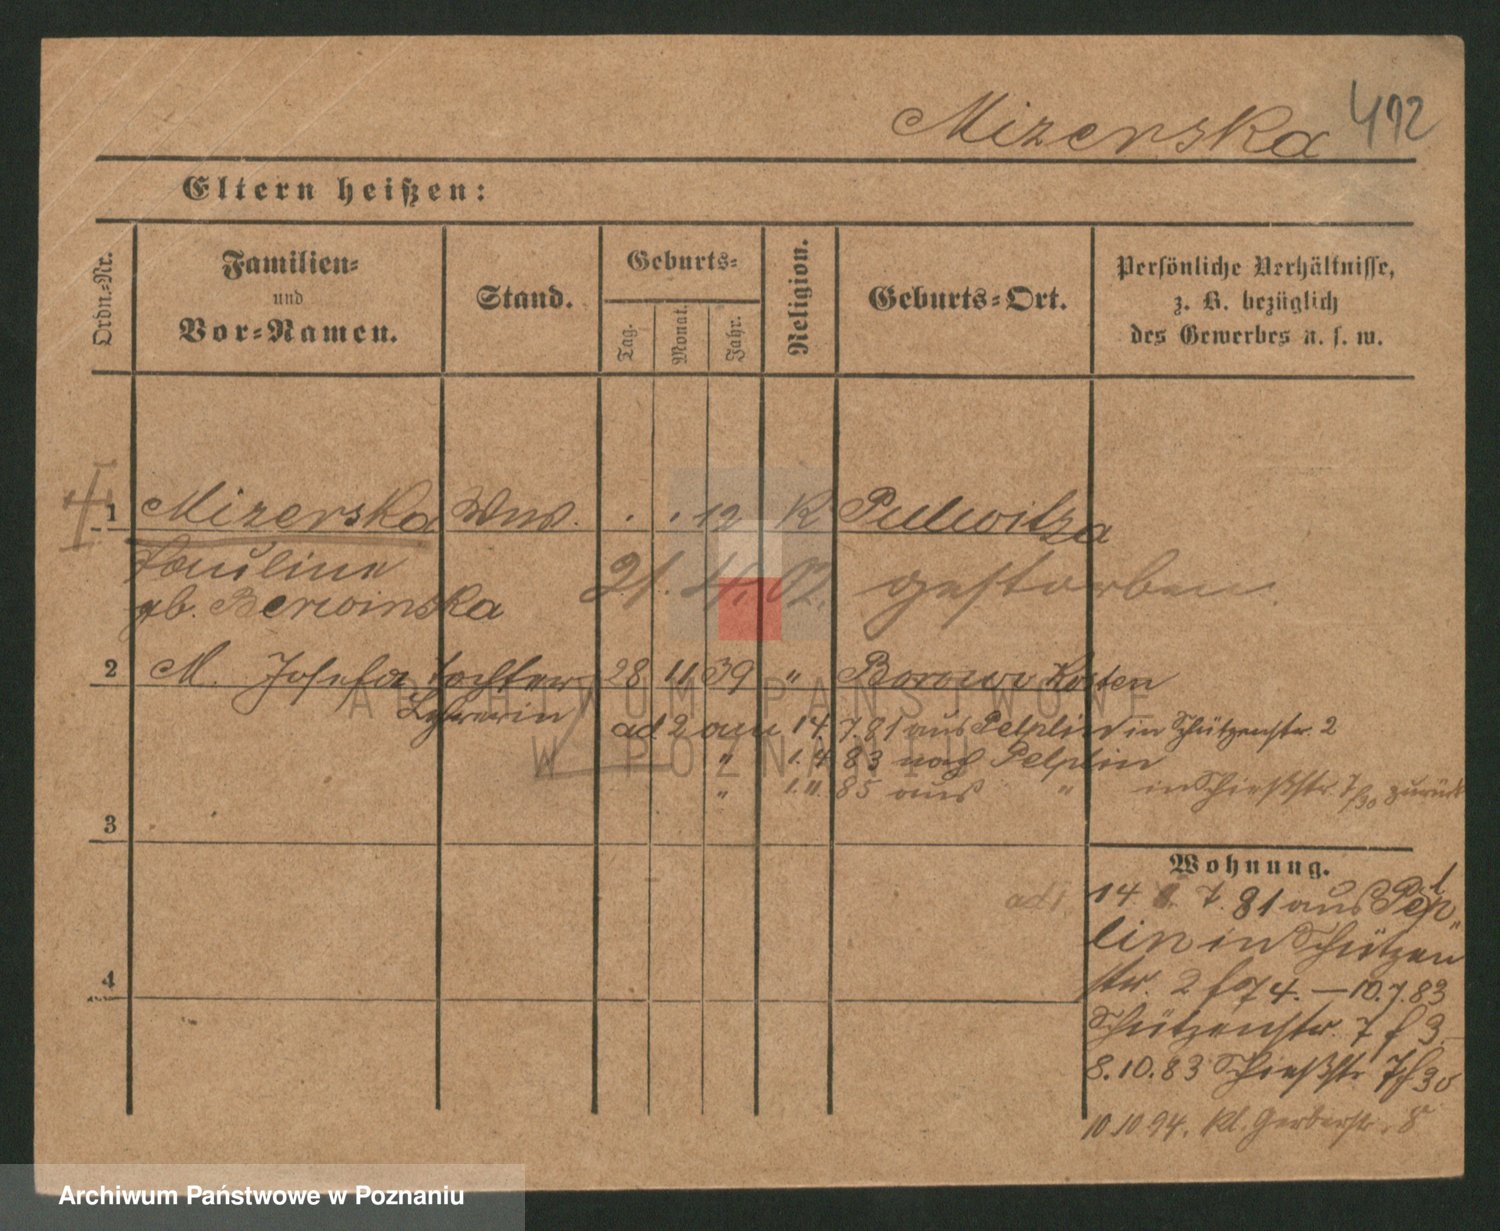 Mizerska 412
Eltern heißen:
Ordn.-Nr.
Familien-
und
Vor-Namen.
Stand.
Geburts-
Tag.
Monat.
Jahr.
Religion.
Geburts-Ort.
Persönliche Verhältnisse,
z. B. bezüglich
des Gewerbes u. s. w.
1 Mizerska Wwe. . . 12 K
Pauline 21. 4. 02. gestorben.
gb. Berwinska
2 M. Josefa Tochter 28 11 39 " Borowo Kosten
Lehrerin ad 2 am 14. 7. 81 aus Pelplin in Schützenstr. 2
" 1. 4. 83 nach Pelplin
" 1. 11. 85 aus " in Schießstr. 7/30 zurück
3
Wohnung.
ad 1 14 7. 81 aus Pel-
plin in Schützen
str. 2 f 74. — 10.7.83
Schützenstr. 7 f 3.
8.10.83 Schießstr 7 f 30
10.10 94. Kl. Gerberstr. 8
4
ARCHIWUM PAŃSTWOWE
W POZNANIU
Archiwum Państwowe w Poznaniu